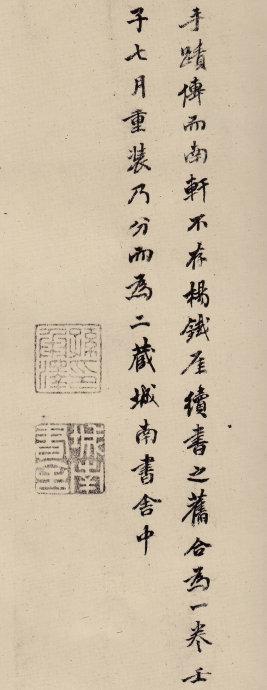 手蹟傳而南軒不存楊鐵厓續書之舊合為一卷壬
子七月重裝乃分而為二藏城南書舍中